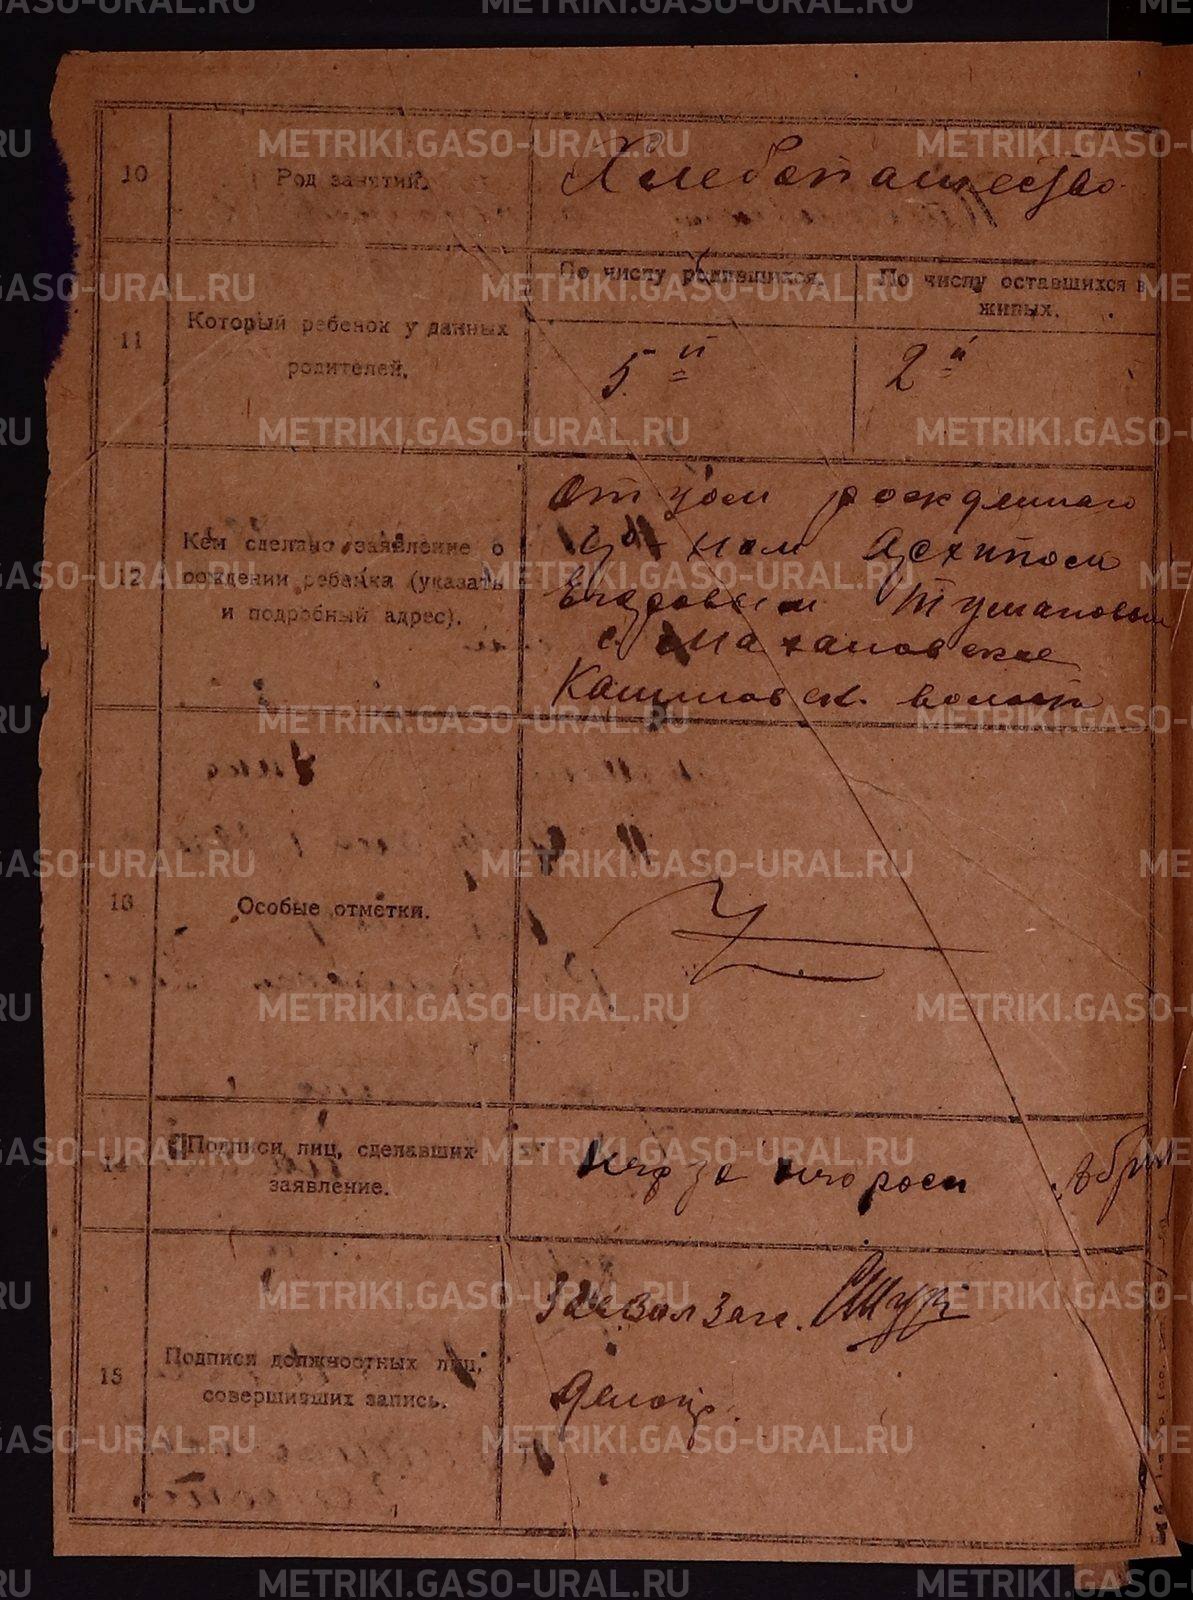 10
Род занятий.
Хлебопашество
11
Который ребенок у данных
родителей.
По числу родившихся.
По числу оставшихся в
живых.
5й
2й
12
Кем сделано заявление о
рождении ребенка (указать
и подробный адрес).
Отцом рожденнаго
Архипом
Егоровым Тумановым
с.
волости
13
Особые отметки.
14
Подписи лиц, сделавших
заявление.
15
Подписи должностных лиц,
совершивших запись.
Завзагс.
Делопр.
METRIKI.GASO-URAL.RU